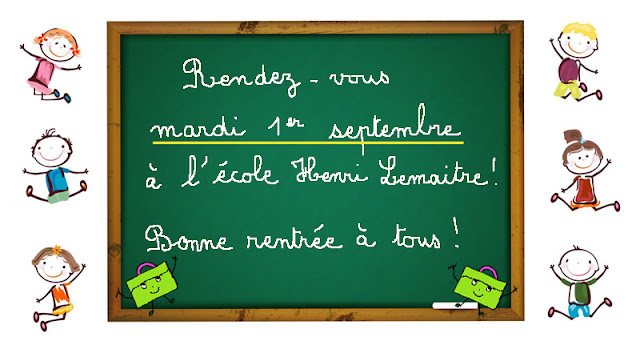 Rendez-vous
mardi 1er septembre
à l'école Henri Lemaitre!
Bonne rentrée à tous !